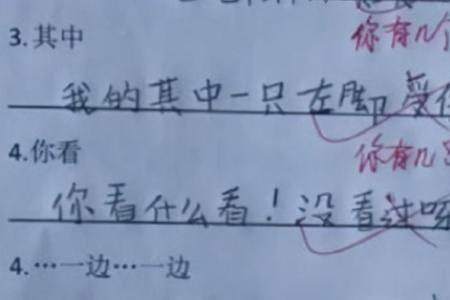 你有几个
3.其中
我的其中一只左脚受伤
你有几只
4.你看
你看什么看！没看过呀
4.…一边…一边